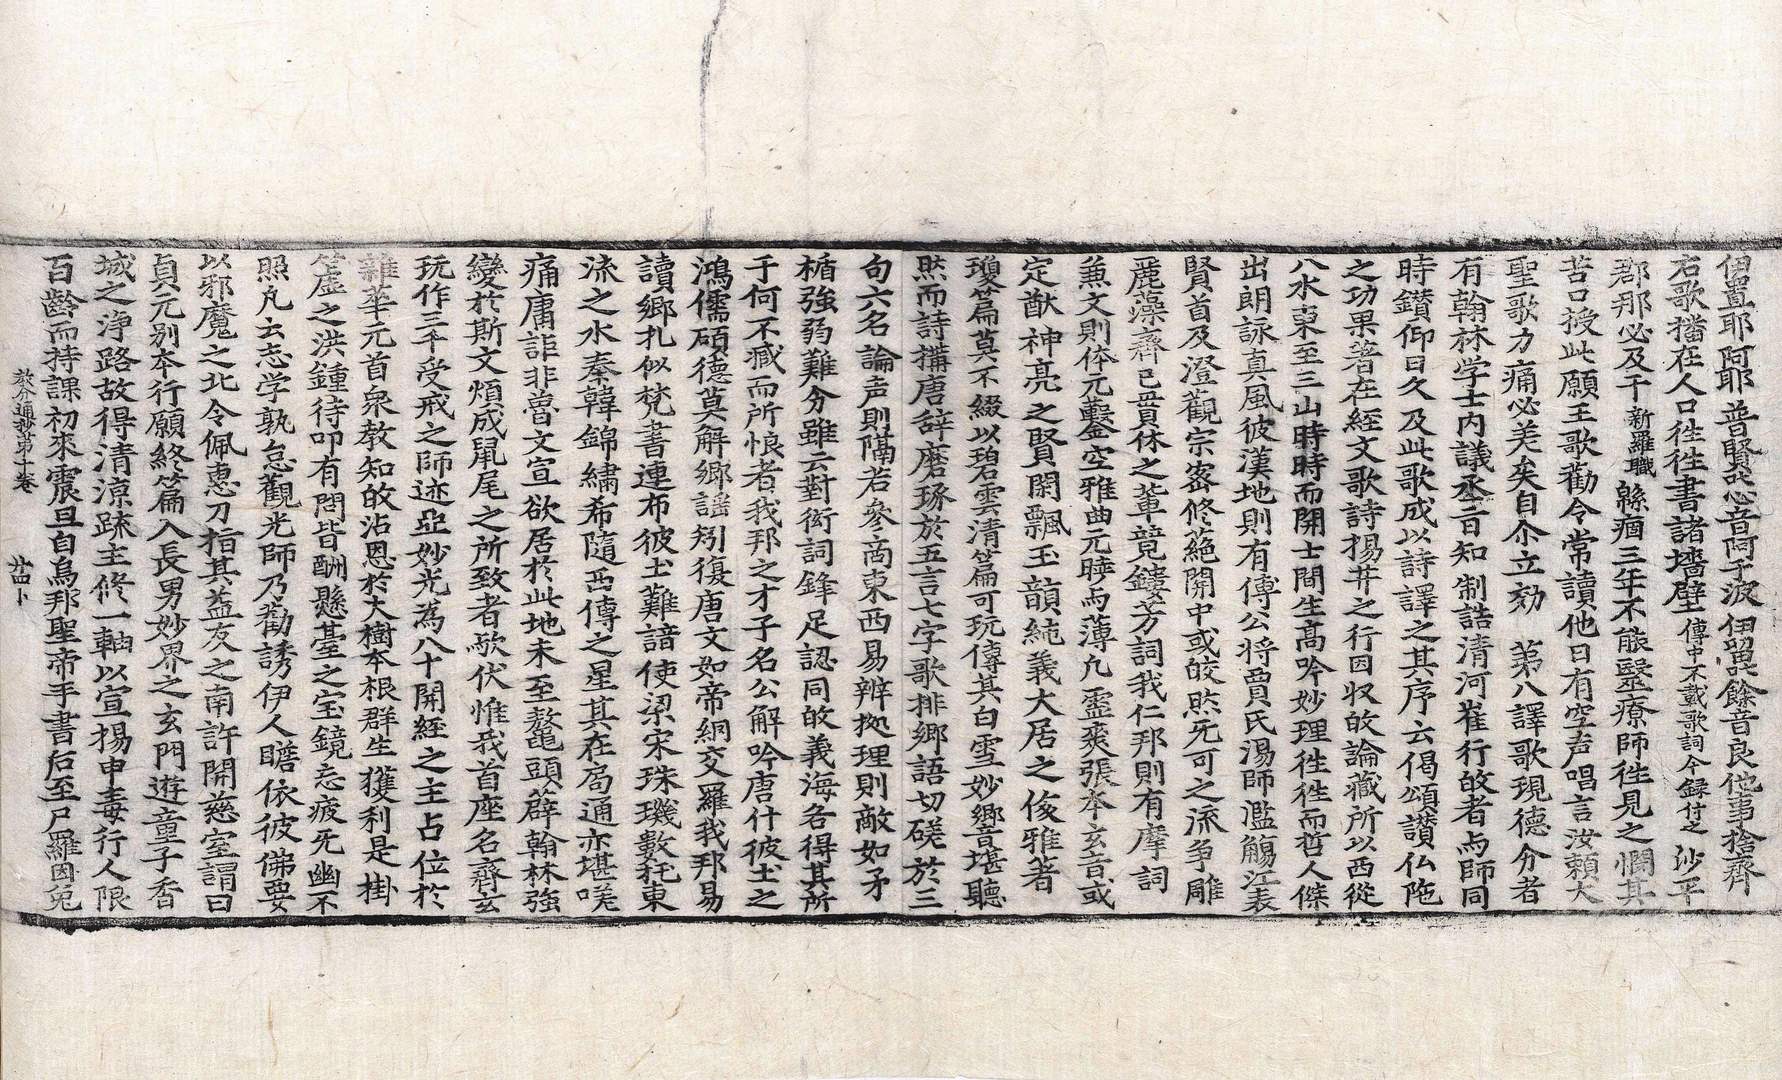 伊置耶阿耶普賢叱心音阿于波伊留叱餘音良他事捨齊
右歌播在人口徃徃書諸墻壁傳中不載歌詞今録付之沙平
郡那必及干新羅職緜痼三年不能毉療師徃見之憫其
苦口授此願王歌勸令常讀他日有空声唱言汝頼大
聖歌力痛必差矣自尒立効 第八譯歌現德分者
有翰林学士内議丞旨知制誥清河崔行敀者与師同
時鑚仰日久及此歌成以詩譯之其序云偈頌讃仏陁
之功果著在經文歌詩揚井之行因収敀論藏所以西從
八水東至三山時時而開士間生髙吟妙理徃徃而哲人傑
出朗詠真風彼漢地則有傅公將賈氏湯師濫觴江表
賢首及澄觀宗宻修蕝関中或皎然无可之流争雕
麗藻齊己貫休之軰競鏤芳詞我仁邦則有摩詞
兼文則体元鑿空雅曲元曉与薄凡靈爽張本玄音或
定猷神亮之賢閑飄玉韻純義大居之俊雅著
瓊篇莫不綴以碧雲清篇可玩傳其白雪妙響堪聽
然而詩搆唐辞磨琢於五言七字歌排郷語切磋於三
句六名論声則隔若參商東西易辨拠理則敵如矛
楯強弱難分雖云對衒詞鋒足認同敀義海各得其所
于何不臧而所恨者我邦之才子名公解吟唐什彼土之
鴻儒碩德莫解郷謡矧復唐文如帝網交羅我邦易
讀郷扎似梵書連布彼土難諳使梁宋珠璣數托東
流之水秦韓錦繡希隨西傳之星其在局通亦堪嘆
痛庸詎非魯文宣欲居於此地未至鼇頭薛翰林強
變於斯文煩成鼠尾之所致者歟伏惟我首座名齊玄
玩作三千受戒之師迹亞妙光為八十開經之主占位於
雜華元首衆教知敀沾恩於大樹本根群生獲利是掛
簴之洪鍾待叩有問皆酬懸臺之宝鏡忘疲无幽不
照凡云志学孰怠觀光師乃勸誘伊人瞻依彼佛要
以邪魔之北令佩惠刀指其益友之南許開慈室謂曰
貞元别本行願終篇入長男妙界之玄門遊童子香
城之浄路故得清涼踈主修一軸以宣揚申毒行人限
百齡而持課初來震旦自烏邦聖帝手書后至尸羅因兔
教分通抄第十卷 廿四卜